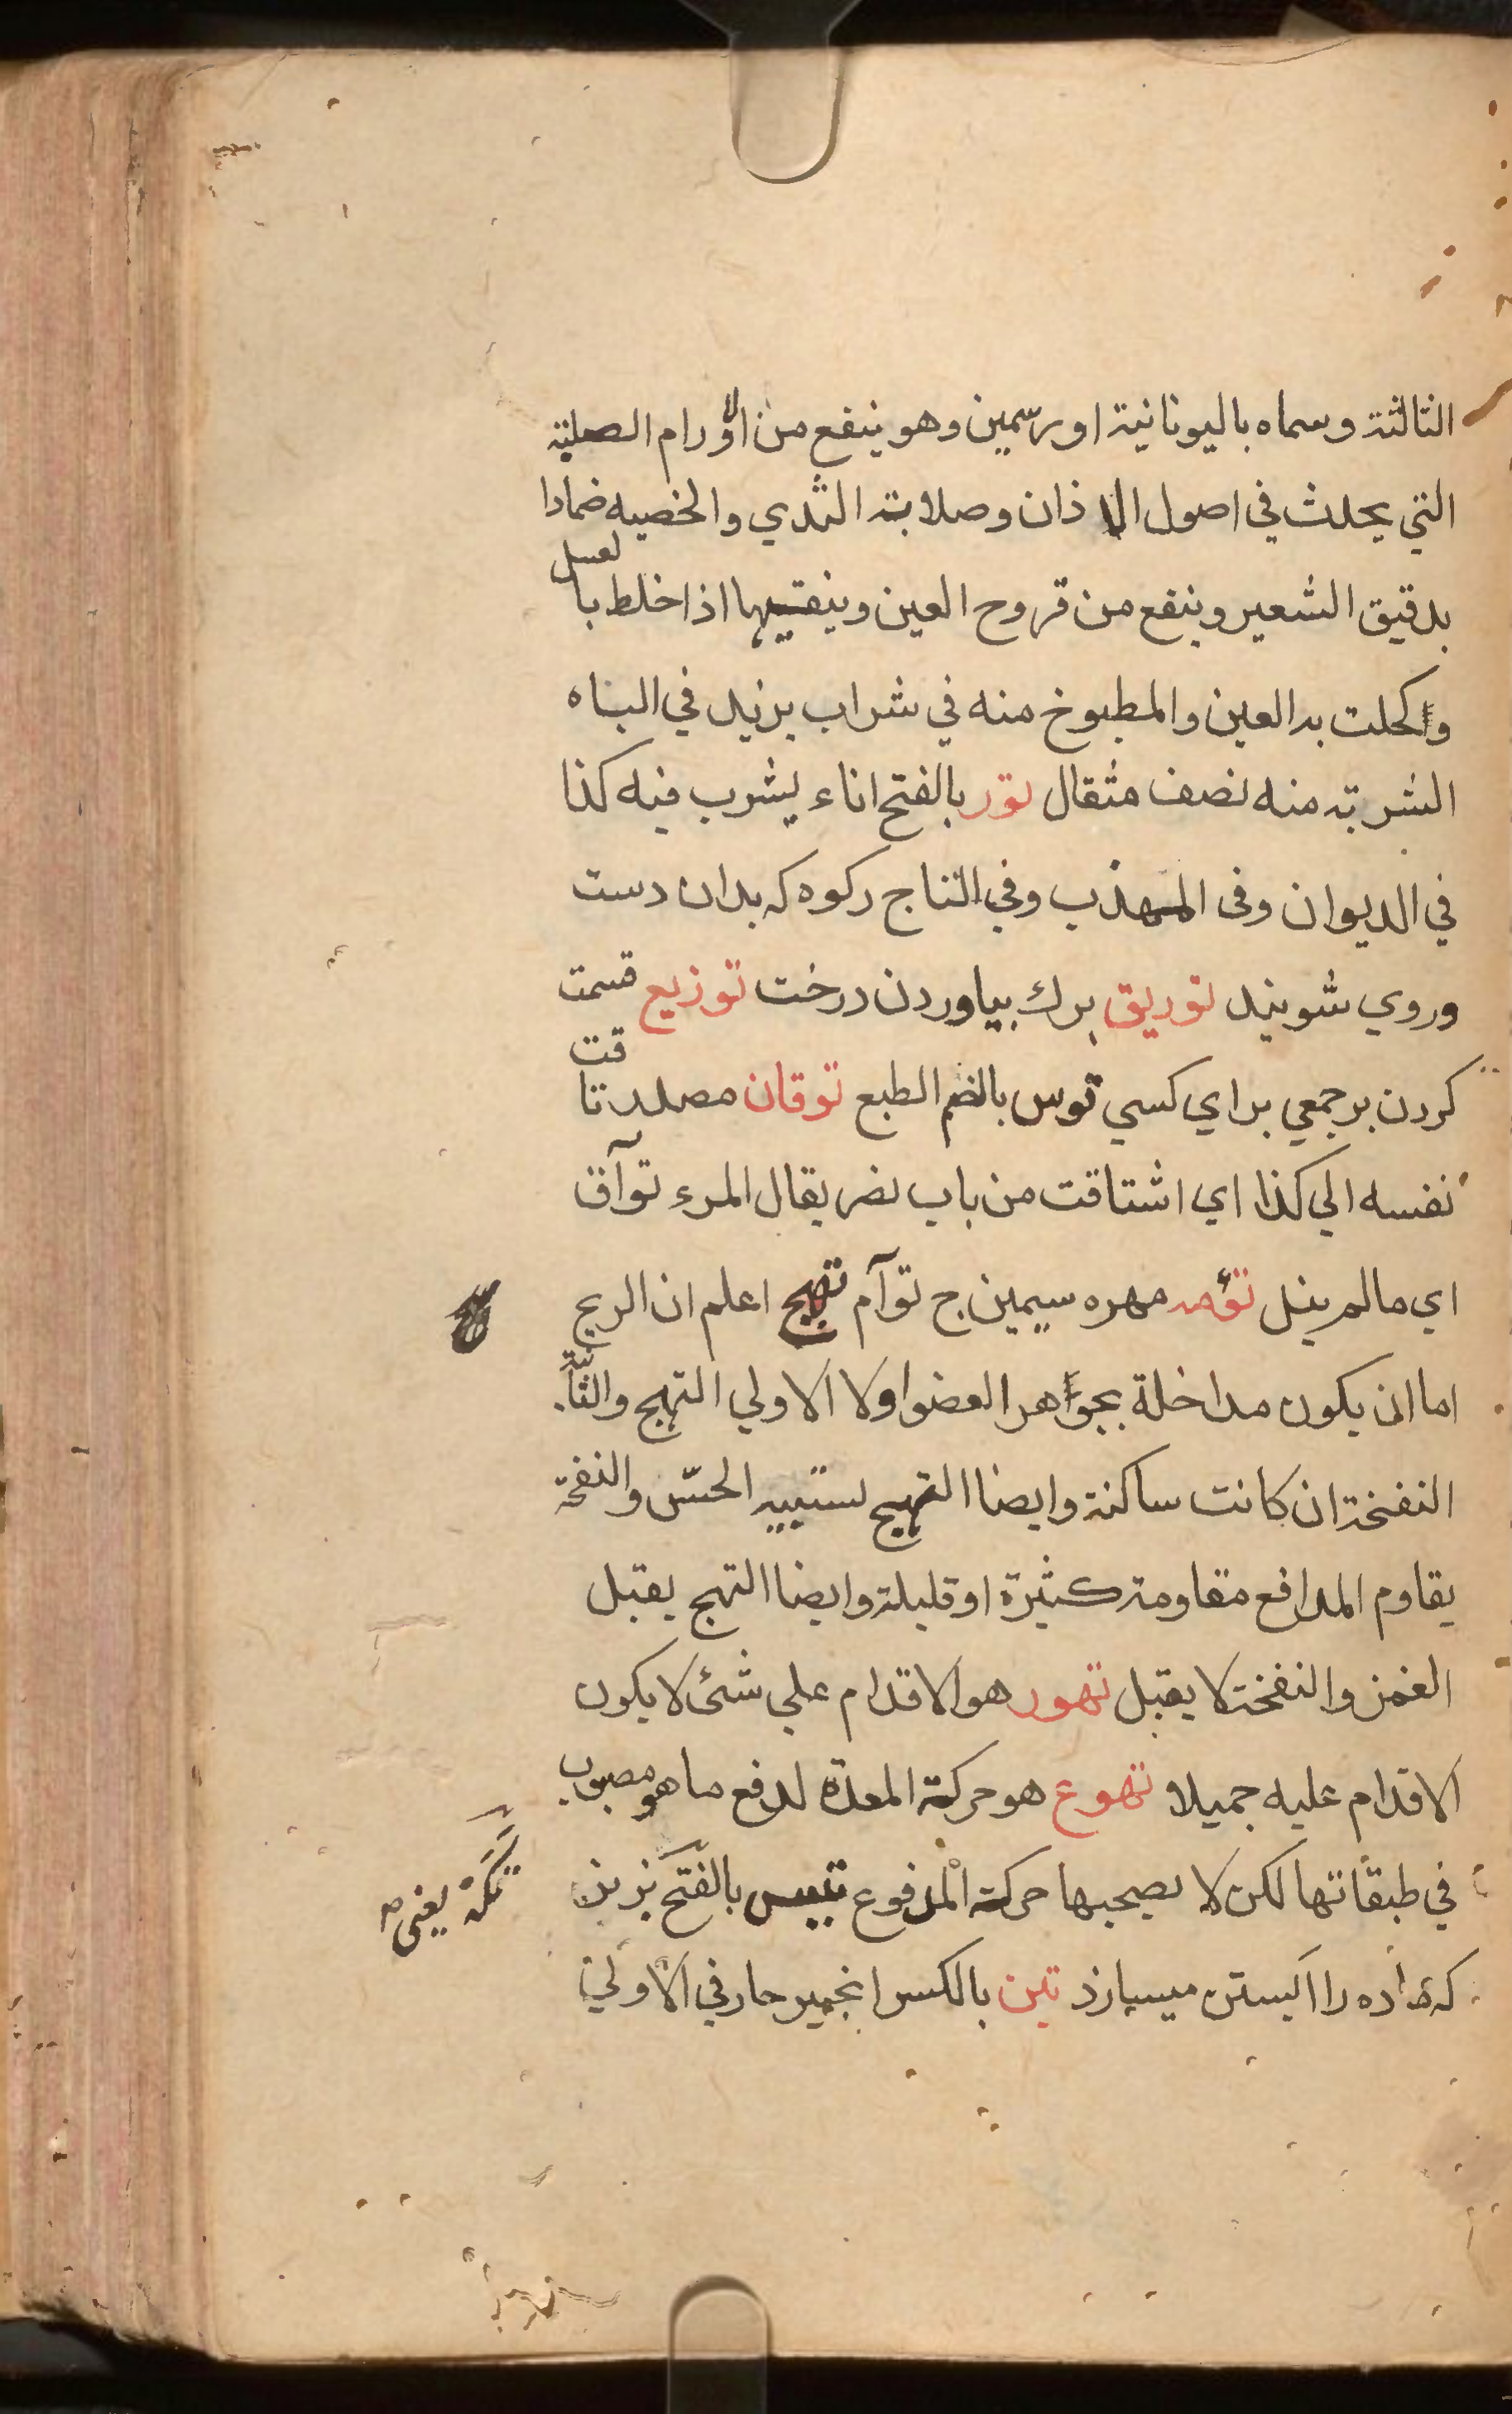 الثالثة وسماه باليونانية اورسمين وهو ينفع من الاورام الصلبة
التي يحدث في اصول الاذان وصلابة الثدي والخصيه ضمادا
بدقيق الشعير وينفع من قروح العين وينقيها اذا خلط بالعسل
واكحلت به العين والمطبوخ منه في شراب يزيد في الباه
الشربة منه نصف مثقال تور بالفتح اناء يشرب فيه كذا
في الديوان وفى المهذب وفي التاج ركوه كه بدان دست
وروي شويند توريق برك بياوردن درخت توزيع قسمت
كردن برجمعي براي كسي توس بالضم الطبع توقان مصدر تاقت
نفسه الي كذا اي اشتاقت من باب نصر يقال المرء توآق
اي مالم ينل تؤمه مهره سيمين ج توآم تهيج اعلم ان الريح
اما ان يكون مداخلة بجواهر العضو اولا الاولي التهيج والثانية
النفخة ان كانت ساكنة وايضا التهيج لستبيه الحسّ والنفخة
يقاوم المدافع مقاومة كثيرة او قليلة وايضا التهيج يقبل
الغمز والنفخة لا يقبل تهور هو الاقدام علي شئ لا يكون
الاقدام عليه جميلا تهوع هو حركة المعدة لدفع ما هو مصبوب
في طبقاتها لكن لا يصحبها حركة المدفوع تيس بالفتح نر بز
تكه يعني
كه ماده را ابستن ميسازد تين بالكسر انجير حار في الاولي